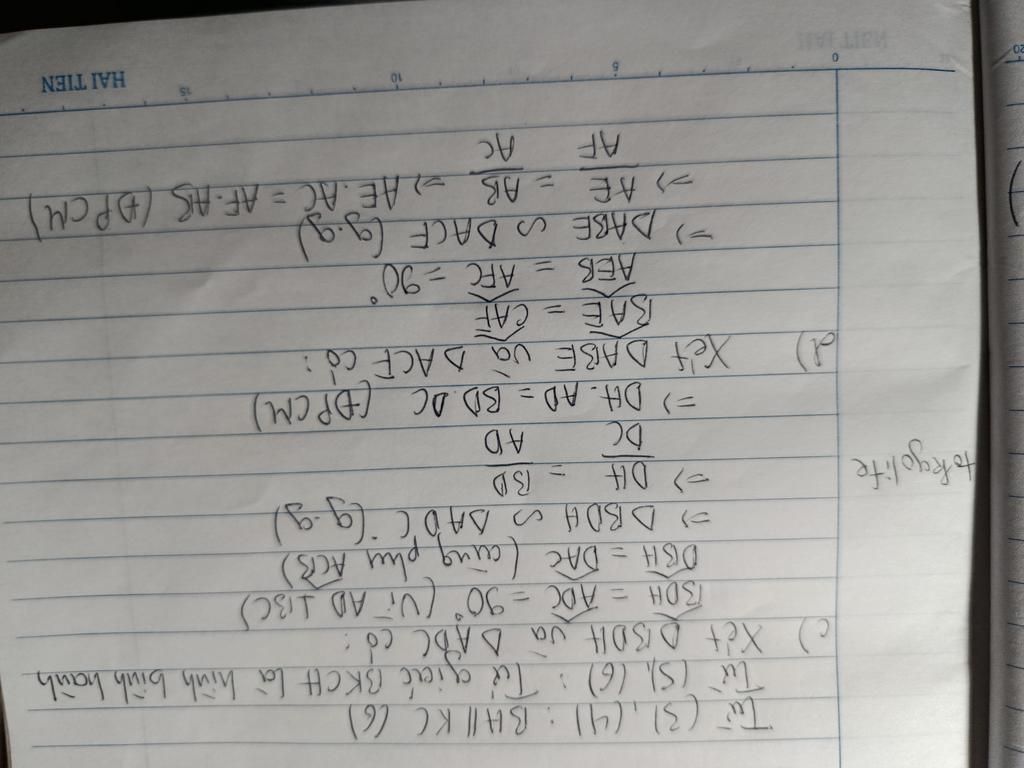 Từ (3), (4) : BH // KC (6)
Từ (5), (6) : Tứ giác BKCH là hình bình hành
c) Xét ΔBDH và ΔADC có :
BDH = ADC = 90° (Vì AD ⊥ BC)
DBH = DAC (cùng phụ ACB)
=> ΔBDH ∽ ΔADC (g.g)
=> DH/DC = BD/AD
tokyolife
=> DH. AD = BD.DC (ĐPCM)
d) Xét ΔABE và ΔACF có :
BAE = CAF
AEB = AFC = 90°
=> ΔABE ∽ ΔACF (g.g)
=> AE/AF = AB/AC => AE.AC = AF.AB (ĐPCM)
0 5 10 15
HAI TIEN
20